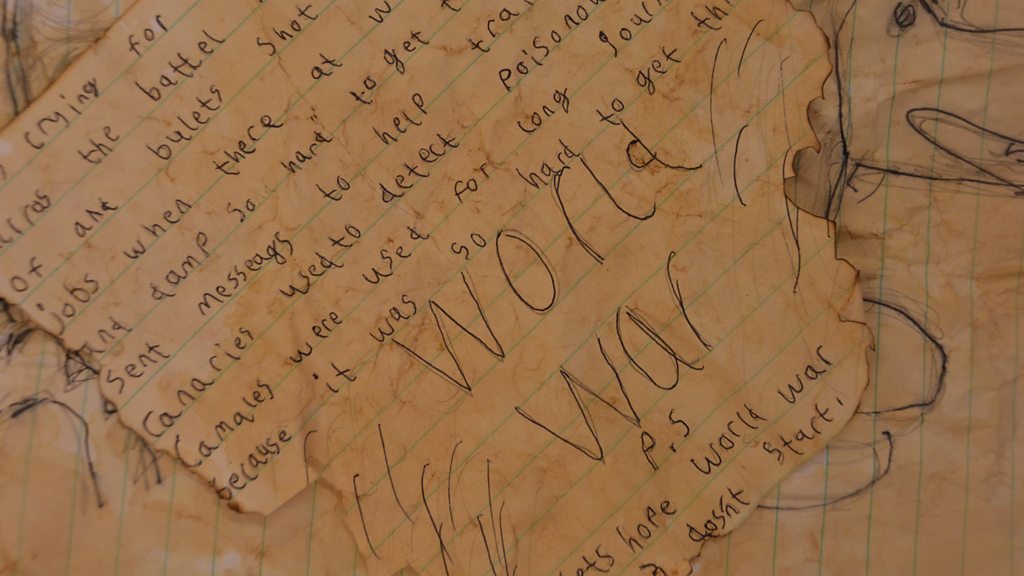 crying for
the battel
of and bulets shot
jobs when there at
And damp so hard to get
Sent messeags to help
Canaries used to detect poisonou
Camales were used for long journ
because it was so hard to get th
World
War
P.S
lets hope world war
dosnt start.